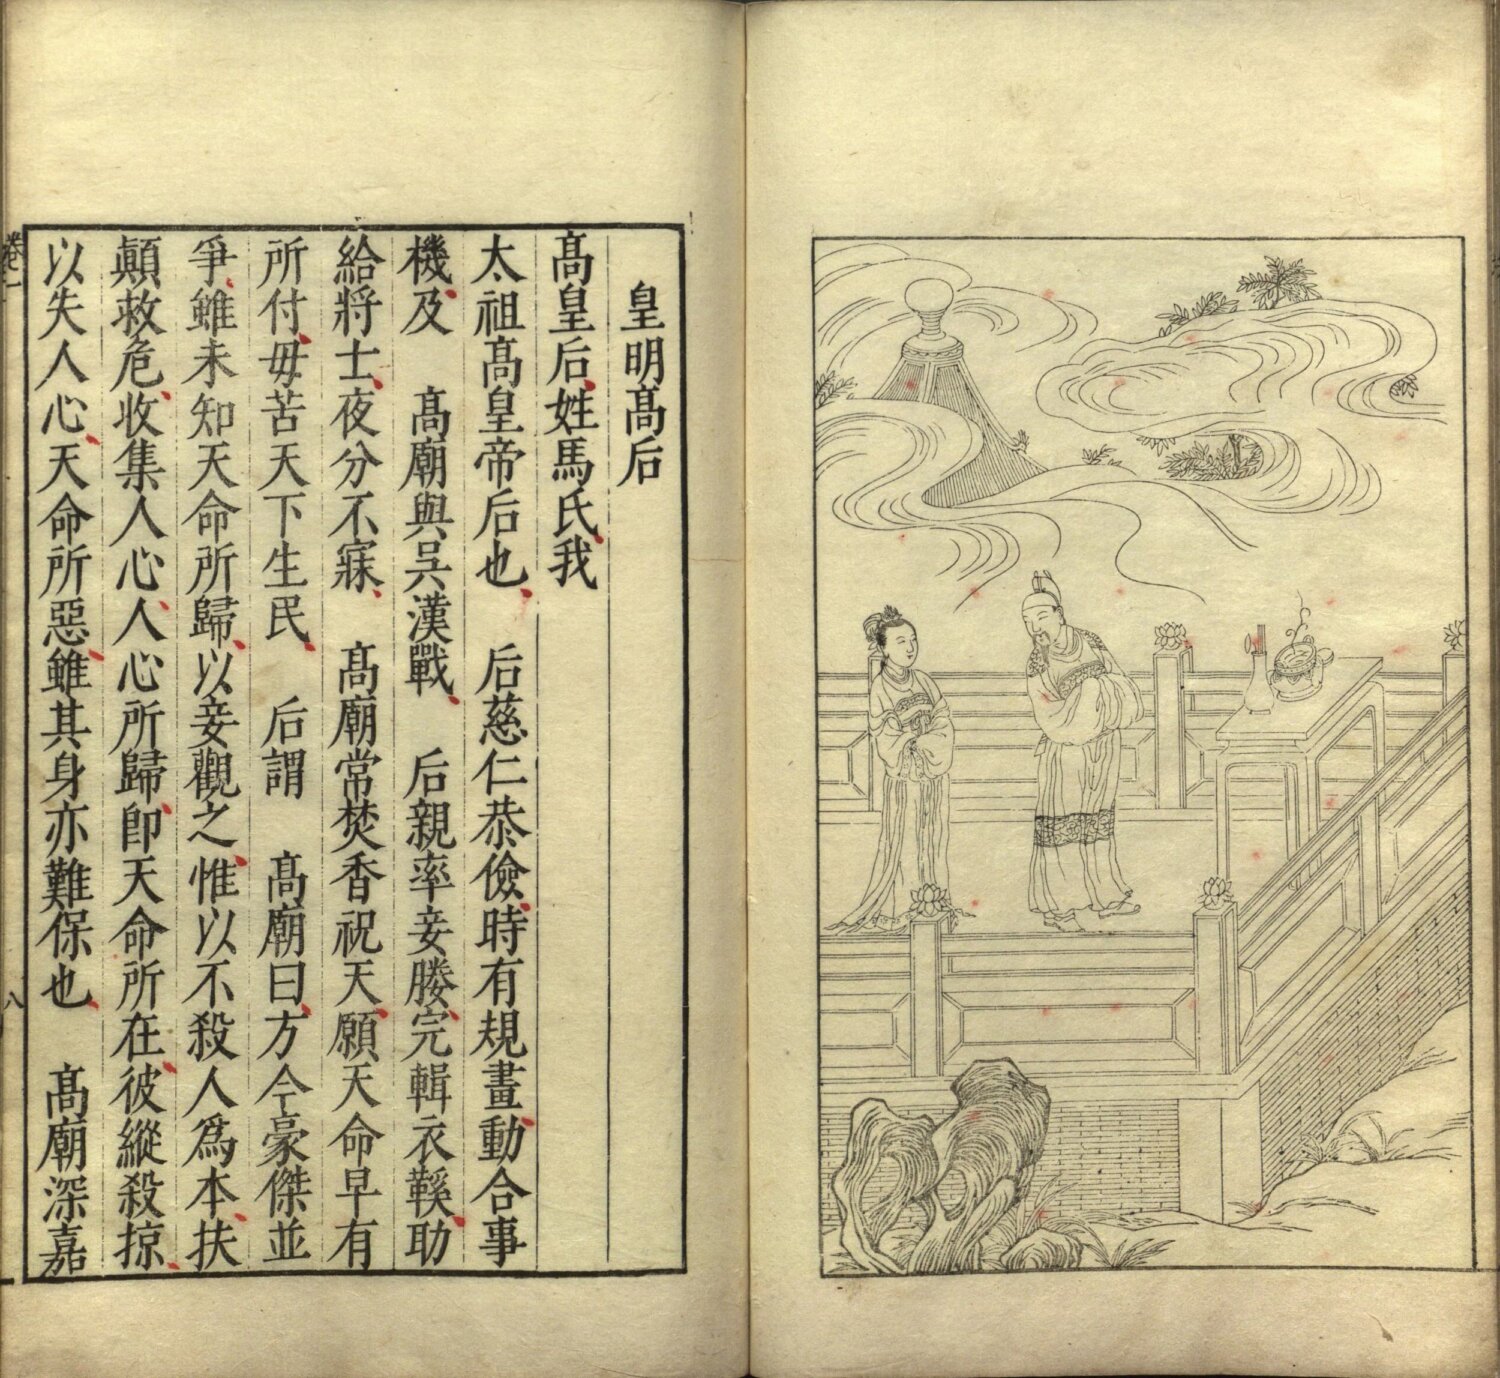 皇明髙后
髙皇后姓馬氏我
太祖髙皇帝后也 后慈仁恭儉時有規畫動合事
機及 髙廟與呉漢戰 后親率妾媵完輯衣鞵助
給將士夜分不寐 髙廟常焚香祝天願天命早有
所付毋苦天下生民 后謂 髙廟曰方今豪傑並
爭雖未知天命所歸以妾觀之惟以不殺人爲本扶
顛救危收集人心人心所歸即天命所在彼縱殺掠
以失人心天命所惡雖其身亦難保也 髙廟深嘉
卷一
八